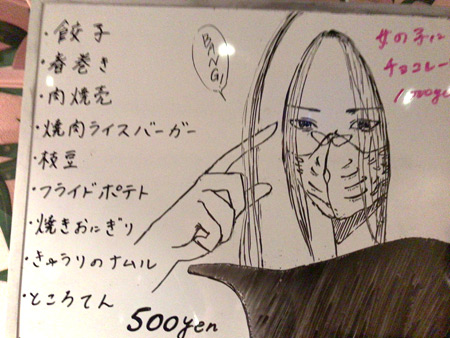 ・餃子
・春巻き
・肉焼売
・焼肉ライスバーガー
・枝豆
・フライドポテト
・焼きおにぎり
・きゅうりのナムル
・ところてん
500yen
BANG!
女の子に
チョコレー